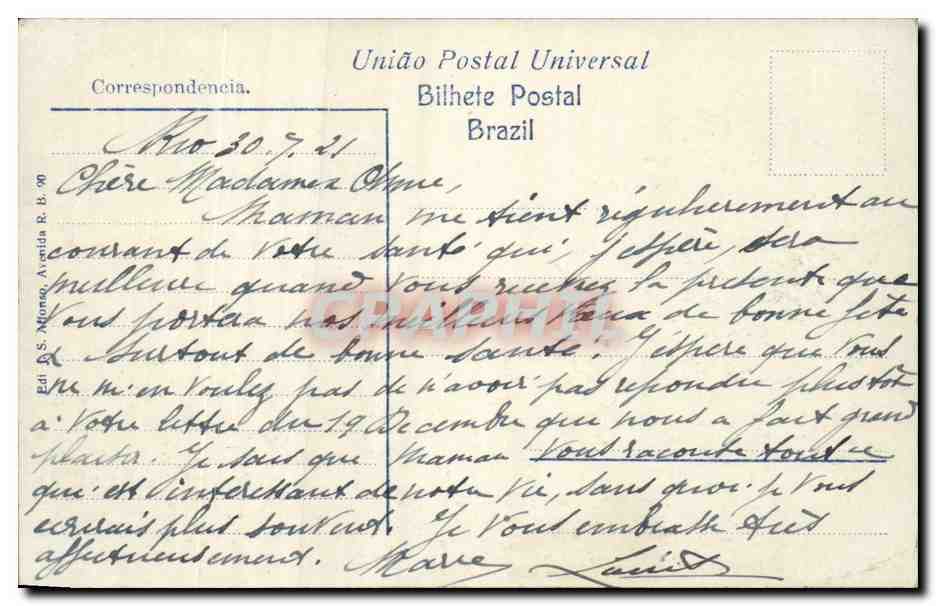 União Postal Universal
Correspondencia.
Bilhete Postal
Brazil
Edi J. S. Affonso, Avenida R. B. 90
Rio 30.7.21
Chère Madame
Maman me tient régulièrement au
courant de votre santé qui, j'espère, sera
meilleure quand vous recevrez la présente que
vous portera nos meilleurs vœux de bonne fête
& surtout de bonne santé. J'espère que vous
ne m'en voulez pas de n'avoir pas repondu plus tôt
à votre lettre du 19 Decembre que nous a fait grand
plaisir. Je sais que maman vous raconte tout ce
qui est intéressant de notre vie, sans quoi je vous
ecrirais plus souvent. Je vous embrasse très
affectueusement. Marie
CPAPHIL